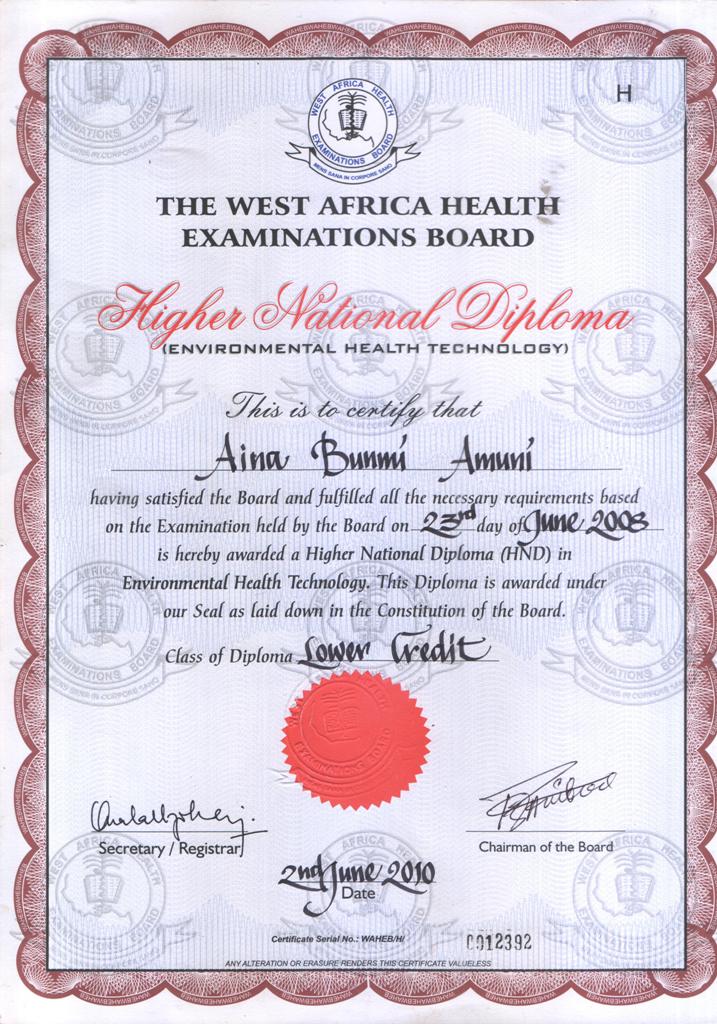 H
WEST AFRICA HEALTH
EXAMINATIONS BOARD
MENS SANA IN CORPORE SANO
THE WEST AFRICA HEALTH
EXAMINATIONS BOARD
Higher National Diploma
(ENVIRONMENTAL HEALTH TECHNOLOGY)
This is to certify that
Aina Bunmi Amuni
having satisfied the Board and fulfilled all the necessary requirements based
on the Examination held by the Board on 23rd day of June 2008
is hereby awarded a Higher National Diploma (HND) in
Environmental Health Technology. This Diploma is awarded under
our Seal as laid down in the Constitution of the Board.
Class of Diploma Lower Credit
Secretary / Registrar
Chairman of the Board
2nd June 2010
Date
Certificate Serial No.: WAHEB/H/ 0012392
ANY ALTERATION OR ERASURE RENDERS THIS CERTIFICATE VALUELESS